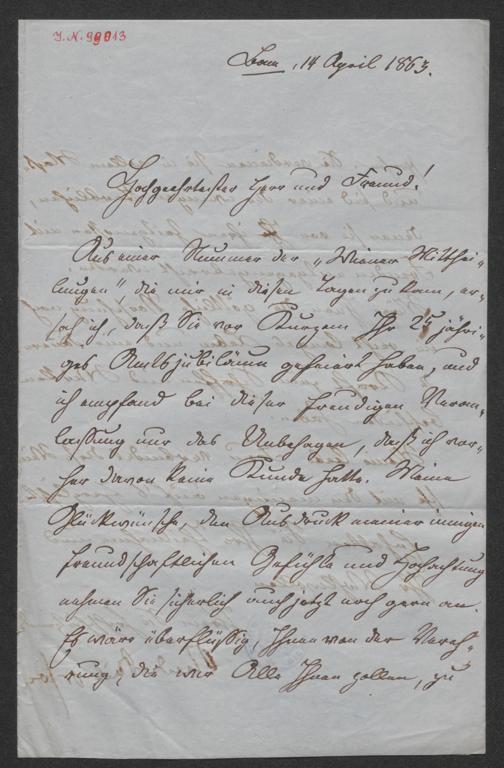 I.N. 99913
Bonn, 14 April 1863.
Hochgeehrtester Herr und Freund!
Aus einer Nummer der „Wiener Mitthei-
lungen", die mir in diesen Tagen zu kam, er-
sah ich, daß Sie vor Kurzem Ihr 25 jähri-
ges Amtsjubiläum gefeiert haben, und
ich empfand bei dieser freudigen Veran-
lassung nur das Unbehagen, daß ich vor-
her davon keine Kunde hatte. Meine
Glückwünsche, den Ausdruck meiner innigen
freundschaftlichen Gefühle und Hochachtung
nehmen Sie sicherlich auch jetzt noch gern an.
Es wäre überflüssig, Ihnen von der Vereh-
rung, die wir Alle Ihnen zollen, zu